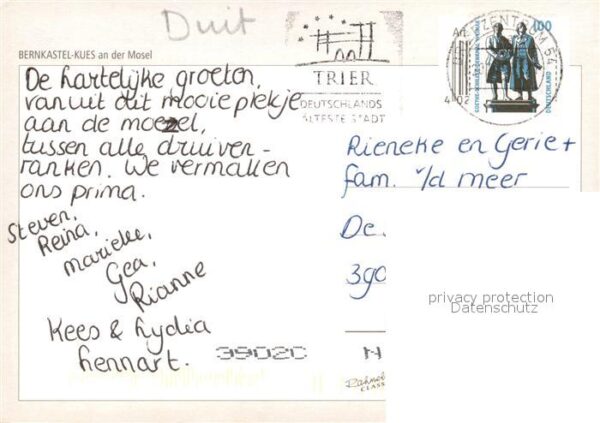 Duit
BERNKASTEL-KUES an der Mosel
De hartelijke groeten,
vanuit dit mooie plekje
aan de moezel,
tussen alle druiven-
ranken. We vermaken
ons prima.
Steven,
Reina,
Marieke,
Gea,
Rianne
Kees & Lydia
Lennart.
TRIER
DEUTSCHLANDS
ÄLTESTE STADT
BRIEFZENTRUM 54
100
DEUTSCHLAND
Rieneke en Gerie +
fam. v/d meer
De
390
3902C N
privacy protection
Datenschutz
CLASS